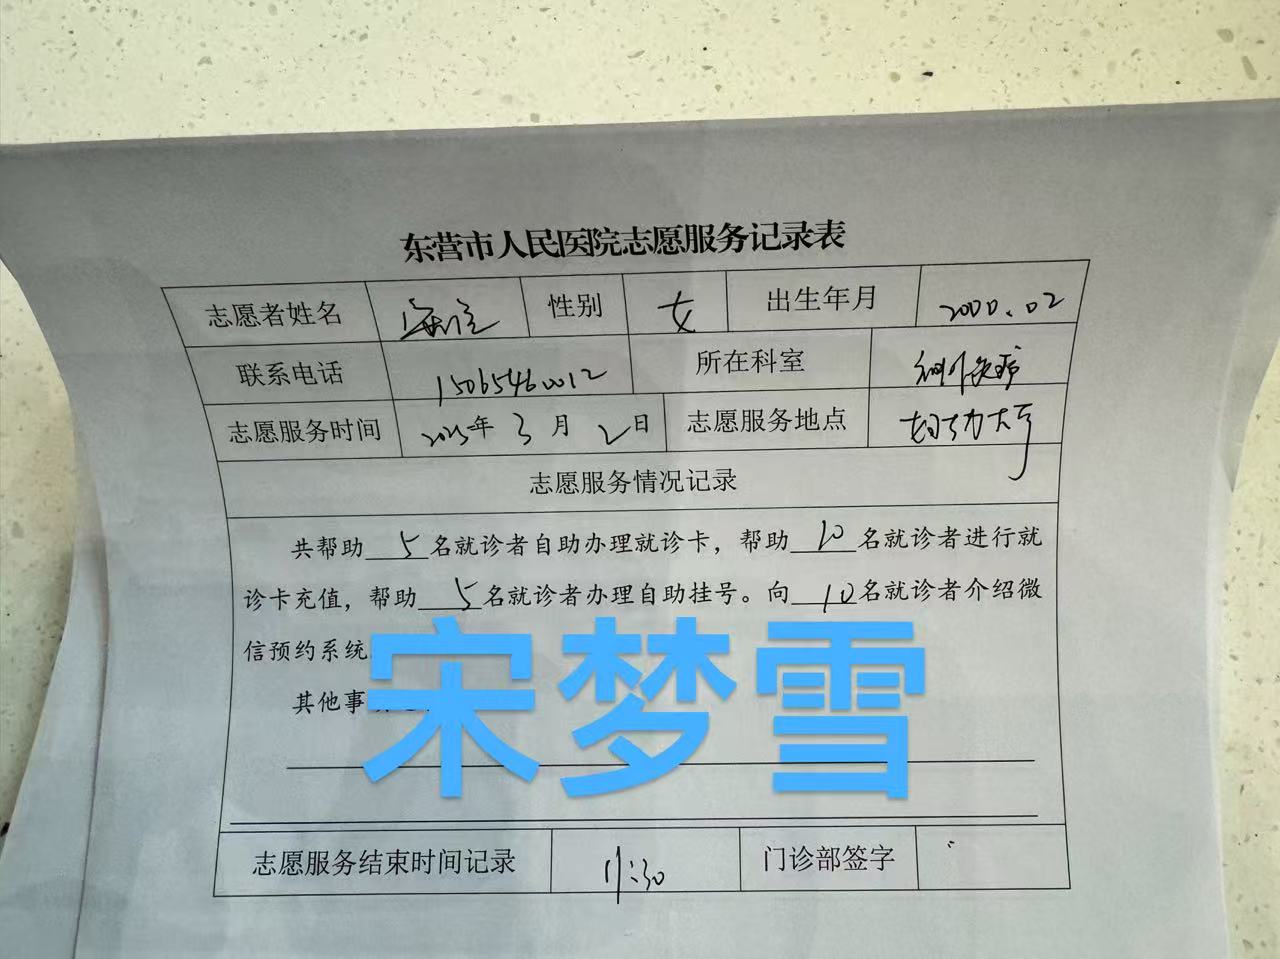 东营市人民医院志愿服务记录表
志愿者姓名 性别 女 出生年月 2000.02
联系电话 15065460012 所在科室
志愿服务时间 2025年3月2日 志愿服务地点 大厅
志愿服务情况记录
共帮助5名就诊者自助办理就诊卡，帮助10名就诊者进行就
诊卡充值，帮助5名就诊者办理自助挂号。向10名就诊者介绍微
信预约系统
其他事
宋梦雪
志愿服务结束时间记录 11:30 门诊部签字